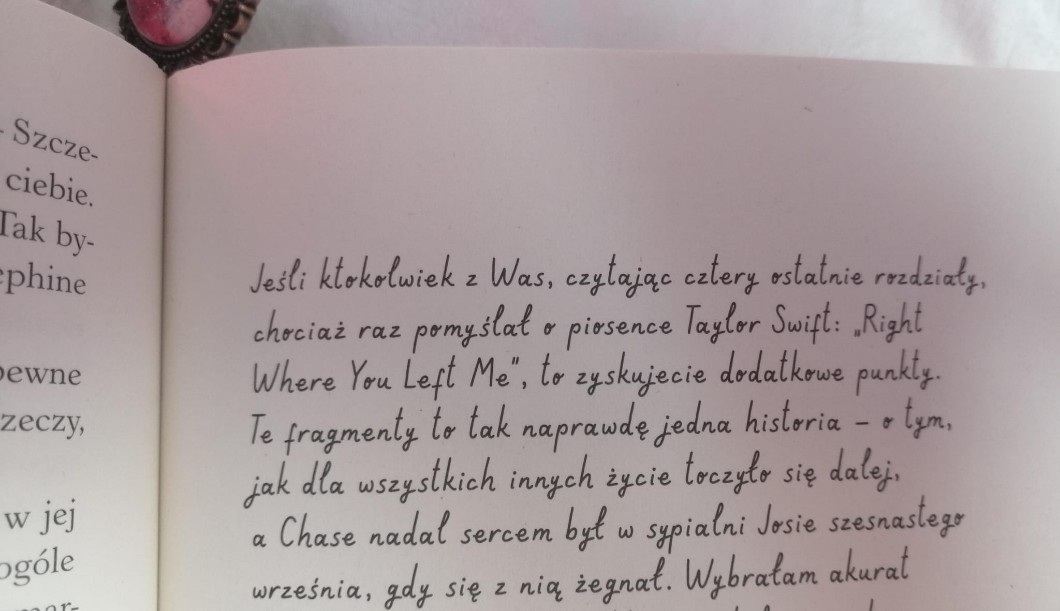 Szcze-
ciebie.
Tak by-
ephine
pewne
rzeczy,
w jej
ogóle
Jeśli ktokolwiek z Was, czytając cztery ostatnie rozdziały,
chociaż raz pomyślał o piosence Taylor Swift: „Right
Where You Left Me”, to zyskujecie dodatkowe punkty.
Te fragmenty to tak naprawdę jedna historia – o tym,
jak dla wszystkich innych życie toczyło się dalej,
a Chase nadal sercem był w sypialni Josie szesnastego
września, gdy się z nią żegnał. Wybrałam akurat